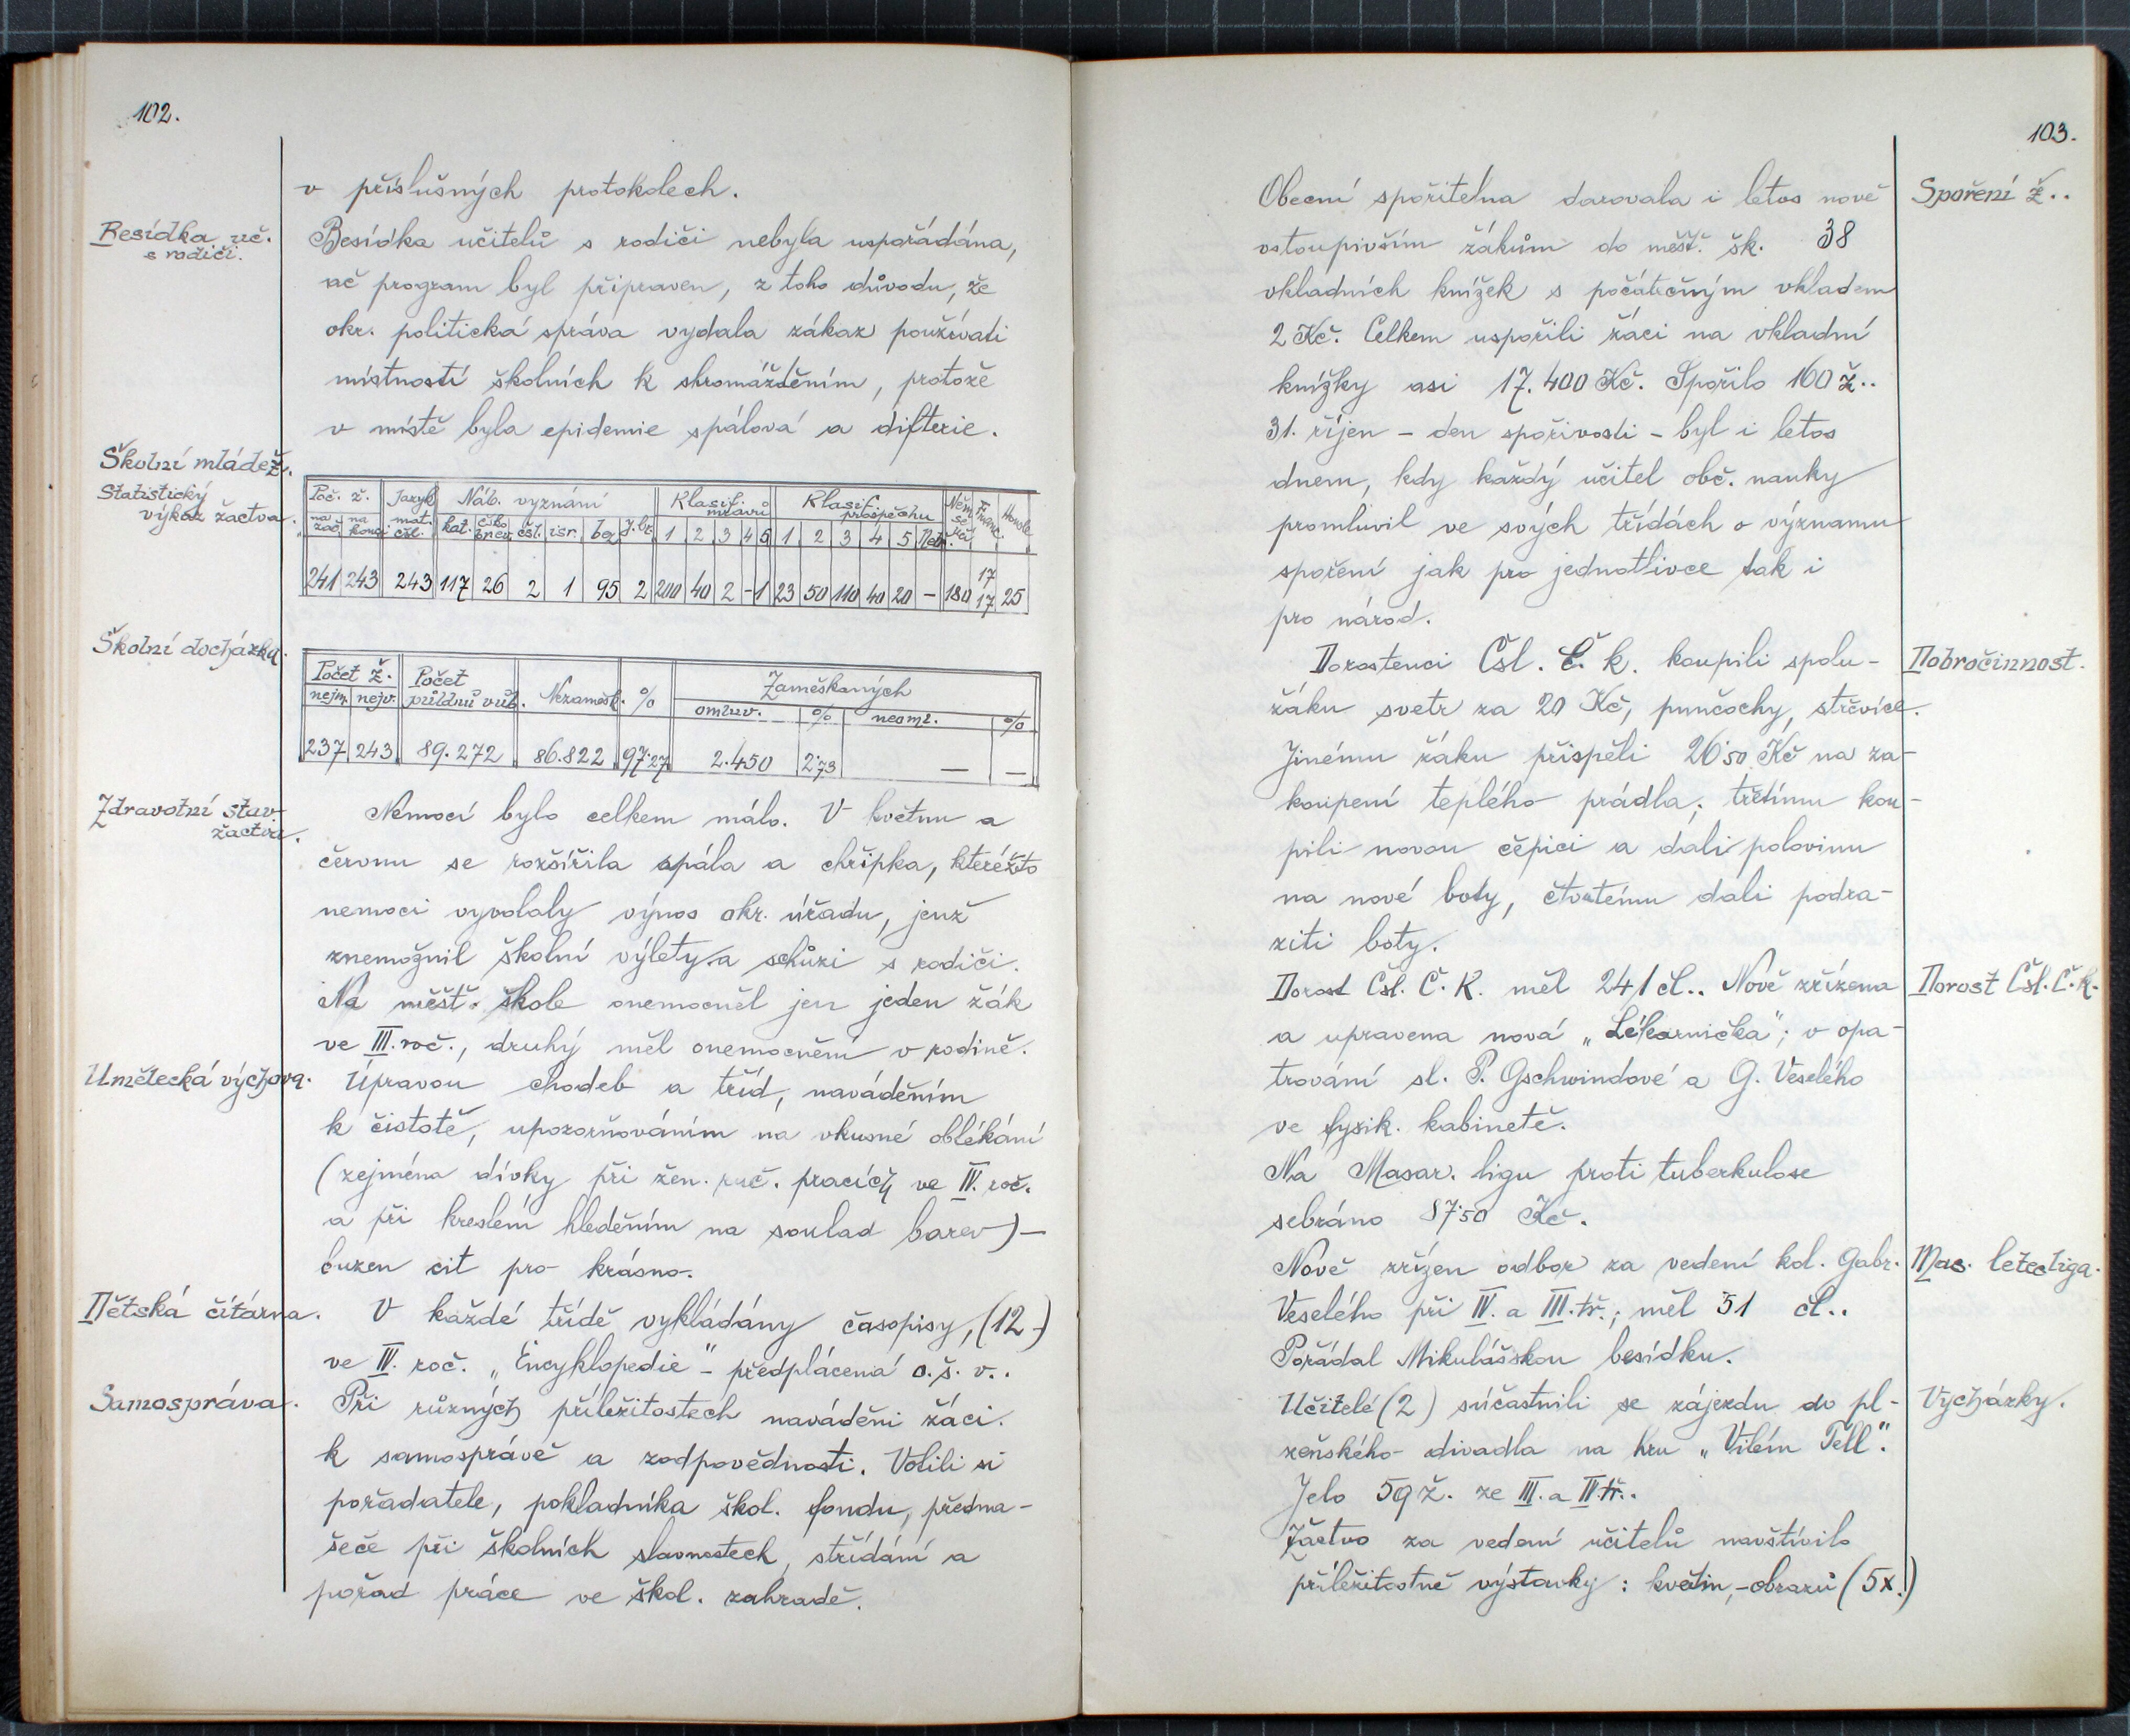 102.
v příslušných protokolech.
Besídka uč.
s rodiči.
Besídka učitelů s rodiči nebyla uspořádána,
ač program byl připraven, z toho důvodu, že
okr. politická správa vydala zákaz používati
místností školních k shromážděním, protože
v místě byla epidemie spálová a difterie.
Školní mládež.
Statistický
výkaz žactva.
Poč. ž. Jazyk Náb. vyznání Klasif. mravů Klasif. prospěchu Franc. Housle
na zač. na konci mat. čsl. kat. čsl. isr. bez 1 2 3 4 5 1 2 3 4 5
241 243 243 117 26 2 1 95 2 200 40 2 - 1 23 50 110 40 20 - 180 17 17 25
Školní docházka.
Počet ž. Počet Nezamešk. % Zameškaných
nejm. nejv. půldnů vůb. omluv. % neoml. %
237 243 89.272 86.822 97·27 2.450 2·73 — —
Zdravotní stav
žactva.
Nemocí bylo celkem málo. V květnu a
červnu se rozšířila spála a chřipka, kteréžto
nemoci vyvolaly výnos okr. úřadu, jenž
znemožnil školní výlety a schůzi s rodiči.
Na měšť. škole onemocněl jen jeden žák
ve III. roč., druhý měl onemocnění v rodině.
Umělecká výchova.
Úpravou chodeb a tříd, naváděním
k čistotě, upozorňováním na vkusné oblékání
(zejména dívky při žen. ruč. pracích ve IV. roč.
a při kreslení hleděním na soulad barev) —
buzen cit pro krásno.
Dětská čítárna.
V každé třídě vykládány časopisy, (12-)
ve IV. roč. „Encyklopedie" - předplácená o. š. v..
Samospráva.
Při různých příležitostech naváděni žáci.
k samosprávě a zodpovědnosti. Volili si
pořadatele, pokladníka škol. fondu, předna-
šeče při školních slavnostech, střídání a
pořad práce ve škol. zahradě.
103.
Spoření ž..
Obecní spořitelna darovala i letos nově
vstoupivším žákům do měšť. šk. 38
vkladních knížek s počátečným vkladem
2 Kč. Celkem uspořili žáci na vkladní
knížky asi 17.400 Kč. Spořilo 160 ž..
31. říjen - den spořivosti - byl i letos
dnem, kdy každý učitel obč. nauky
promluvil ve svých třídách o významu
spoření jak pro jednotlivce tak i
pro národ.
Dobročinnost.
Dorostenci Čsl. Č. k. koupili spolu-
žáku svetr za 20 Kč, punčochy, střevíce.
Jinému žáku přispěli 26·50 Kč na za-
koupení teplého prádla; třetímu kou-
pili novou čépici a dali polovinu
na nové boty, čtvrtému dali podra-
ziti boty.
Dorost Čsl. Č. k.
Dorost Čsl. Č. K. měl 241 čl.. Nově zřízena
a upravena nová „Lékarnička"; v opa-
trování sl. P. Gschwindové a G. Veselého
ve fysik. kabinetě.
Na Masar. ligu proti tuberkulose
sebráno 87·50 Kč.
Mas. letec. liga.
Nově zřízen odbor za vedení kol. Gabr.
Veselého při IV. a III. tř.; měl 51 čl..
Pořádal Mikulášskou besídku.
Vycházky.
Učitelé (2) súčastnili se zájezdu do pl-
zeňského divadla na hru „Vilém Tell".
Jelo 59 ž. ze III. a II. tř..
Žactvo za vedení učitelů navštívilo
příležitostné výstavky: květin, - obrazů (5x.)